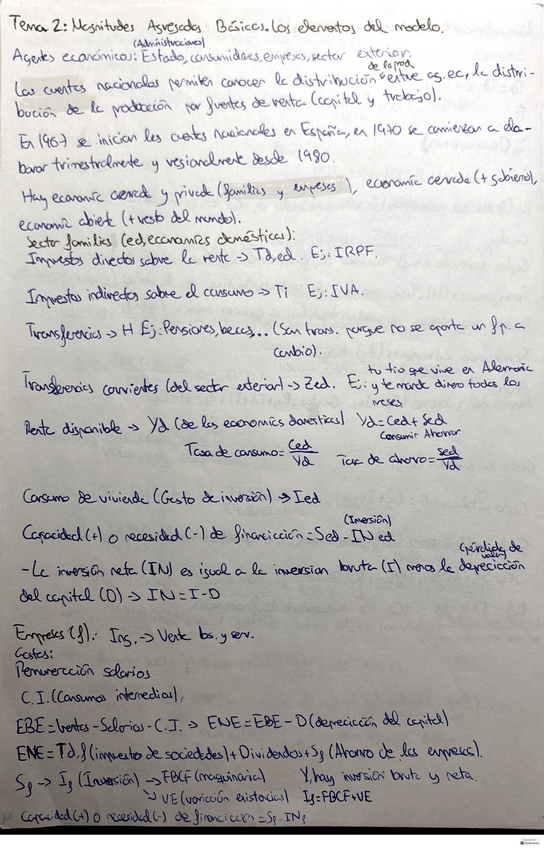 Tema 2: Magnitudes Agregadas Básicas. Los elementos del modelo.
(Administraciones)
Agentes económicos: Estado, consumidores, empresas, sector exterior.
de la prod.
Las cuentas nacionales permiten conocer la distribución entre ag. ec, la distri-
bución de la producción por fuentes de renta (capital y trabajo).
En 1967 se inician las cuentas nacionales en España, en 1970 se comienzan a ela-
borar trimestralmente y regionalmente desde 1980.
Hay economía cerrada y privada (familias y empresas), economía cerrada (+ gobierno),
economía abierta (+ resto del mundo).
Sector familias (ed, economías domésticas):
Impuestos directos sobre la renta → Td,ed. Ej: IRPF.
Impuestos indirectos sobre el consumo → Ti Ej: IVA.
Transferencias → H Ej: Pensiones, becas,... (Son trans. porque no se aporta un f.p. a
cambio).
tu tio que vive en Alemania
Transferencias corrientes (del sector exterior) → Zed. Ej: y te manda dinero todos los
meses.
Renta disponible → Yd (de las economías domésticas) Yd = Ced + Sed
Consumir Ahorrar
Tasa de consumo = Ced/Yd Tasa de ahorro = Sed/Yd
Consumo de vivienda (Gasto de inversión) → Ied
(Inversión)
Capacidad (+) o necesidad (-) de financiación = Sed - INed
(pérdida de valor)
- La inversión neta (IN) es igual a la inversion bruta (I) menos la depreciación
del capital (D) → IN = I - D
Empresas (f): Ing. → Venta bs. y serv.
Costes:
Remuneración salarios
C.I. (Consumos intermedios)
EBE = Ventas - Salarios - C.I. → ENE = EBE - D (depreciación del capital)
ENE = Td,f (impuesto de sociedades) + Dividendos + Sf (Ahorro de las empresas).
Sf → If (Inversión) → FBCF (maquinaria) Y, hay inversión bruta y neta.
↘ VE (variación existencias) If = FBCF + VE
Capacidad (+) o necesidad (-) de financiación = Sf - INf